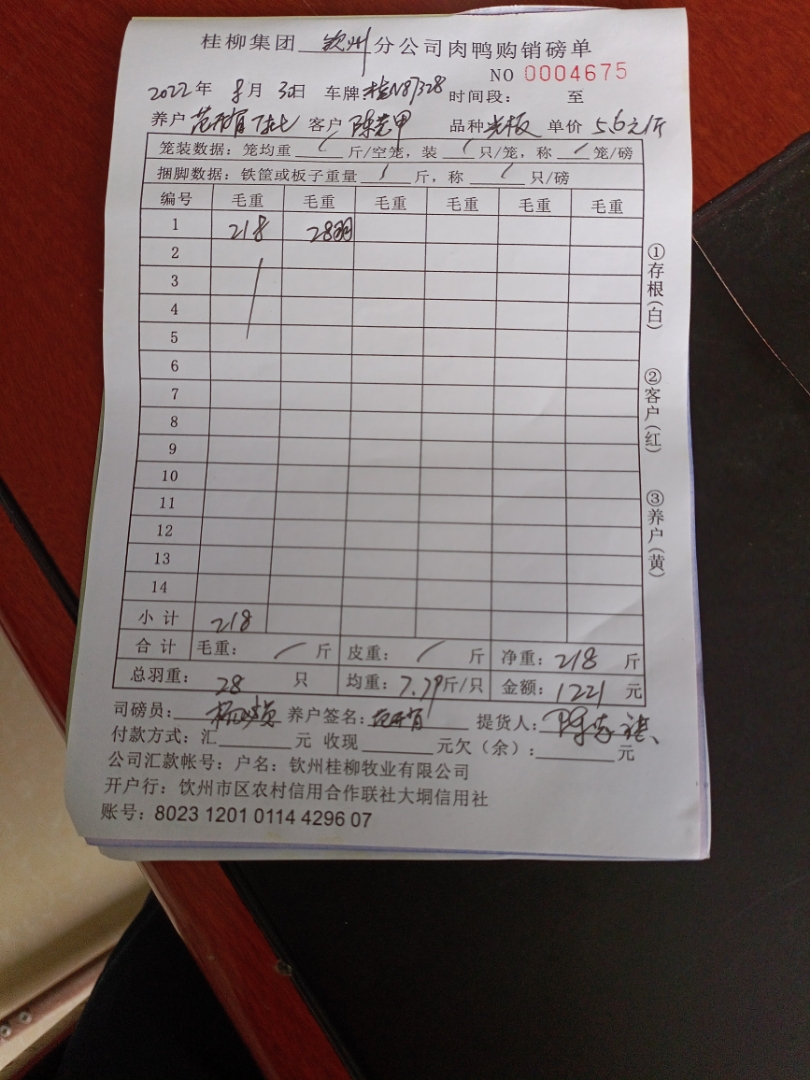 桂柳集团 钦州 分公司肉鸭购销磅单
NO 0004675
2022年 8月 30日 车牌 桂N87328 时间段: 至
养户 客户 陈 甲 品种 光板 单价 5.6元/斤
笼装数据:笼均重 / 斤/空笼,装 / 只/笼,称 / 笼/磅
捆脚数据:铁筐或板子重量 / 斤,称 / 只/磅
编号 毛重 毛重 毛重 毛重 毛重 毛重
1 218 28羽
2
3
4
5
6
7
8
9
10
11
12
13
14
小计 218
合计 毛重: / 斤 皮重: / 斤 净重: 218 斤
总羽重: 28 只 均重: 7.79斤/只 金额: 1221 元
司磅员: 养户签名: 提货人: 陈
付款方式:汇 元 收现 元欠(余): 元
公司汇款帐号:户名:钦州桂柳牧业有限公司
开户行:钦州市区农村信用合作联社大垌信用社
账号:8023 1201 0114 4296 07
①存根(白)
②客户(红)
③养户(黄)